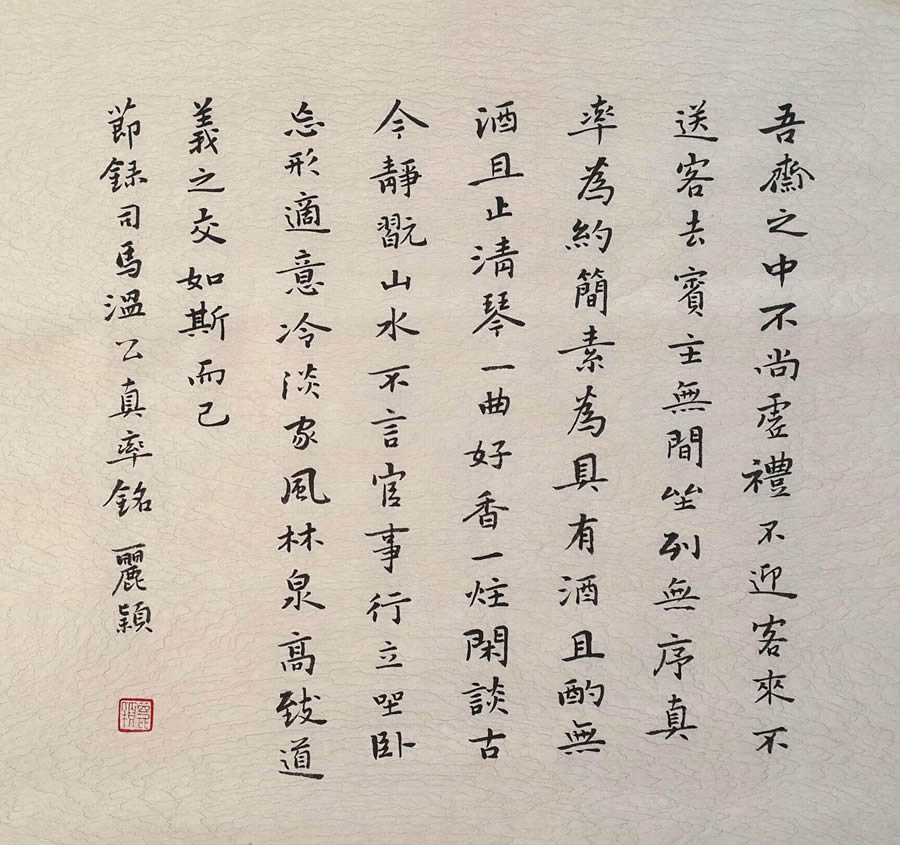 吾齋之中不尚虛禮不迎客來不
送客去賓主無間坐列無序真
率為約簡素為具有酒且酌無
酒且止清琴一曲好香一炷閑談古
今靜翫山水不言官事行立坐卧
忘形適意冷淡家風林泉高致道
義之交如斯而已
節録司馬溫公真率銘 麗穎